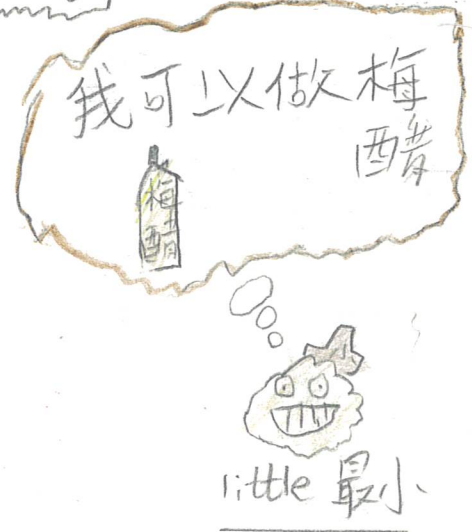 我可以做梅
醋
梅
醋
little 最小